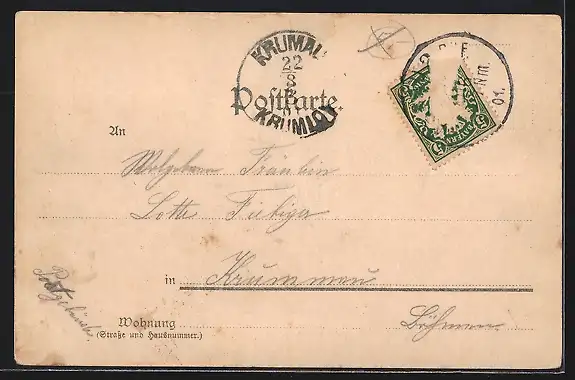 KRUMAU
22
8
KRUMLOV
Postkarte.
Nm.
01.
BAYERN
5
5
An
Fräulein
Lotte Fiebiger
in Krummau
Wohnung
(Straße und Hausnummer.)
Böhmen